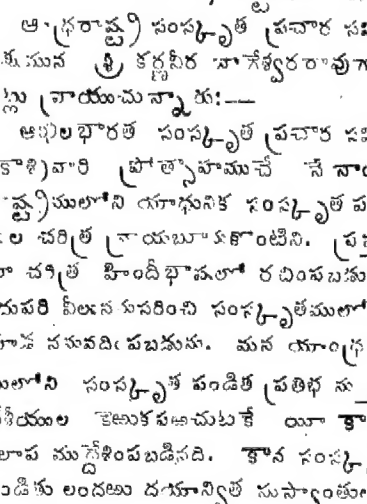 ఆంధ్రరాష్ట్ర సంస్కృత ప్రచార
శ్రీ కర్ణవీర నాగేశ్వరరావుగా
వ్రాయుచున్నారు:—
అఖిలభారత సంస్కృత ప్రచార
కాశి)వారి ప్రోత్సాహముచే నే
ములోని యాధునిక సంస్కృత ప
ల చరిత్ర వ్రాయబూనుకొంటిని. ప్ర
చరిత్ర హిందీభాషలో రచింపబడు
నుపరి వీలునుసరించి సంస్కృతములో
నువదింపబడును. మన యాంధ్ర
లోని సంస్కృత పండిత ప్రతిభ
శీయుల కెఱుకపఱచుటకే యీ కా
లాప ముద్దేశింపబడినది. కాన సంస్కృ
ండితు లందఱు దయాన్విత సుస్వాంతులు